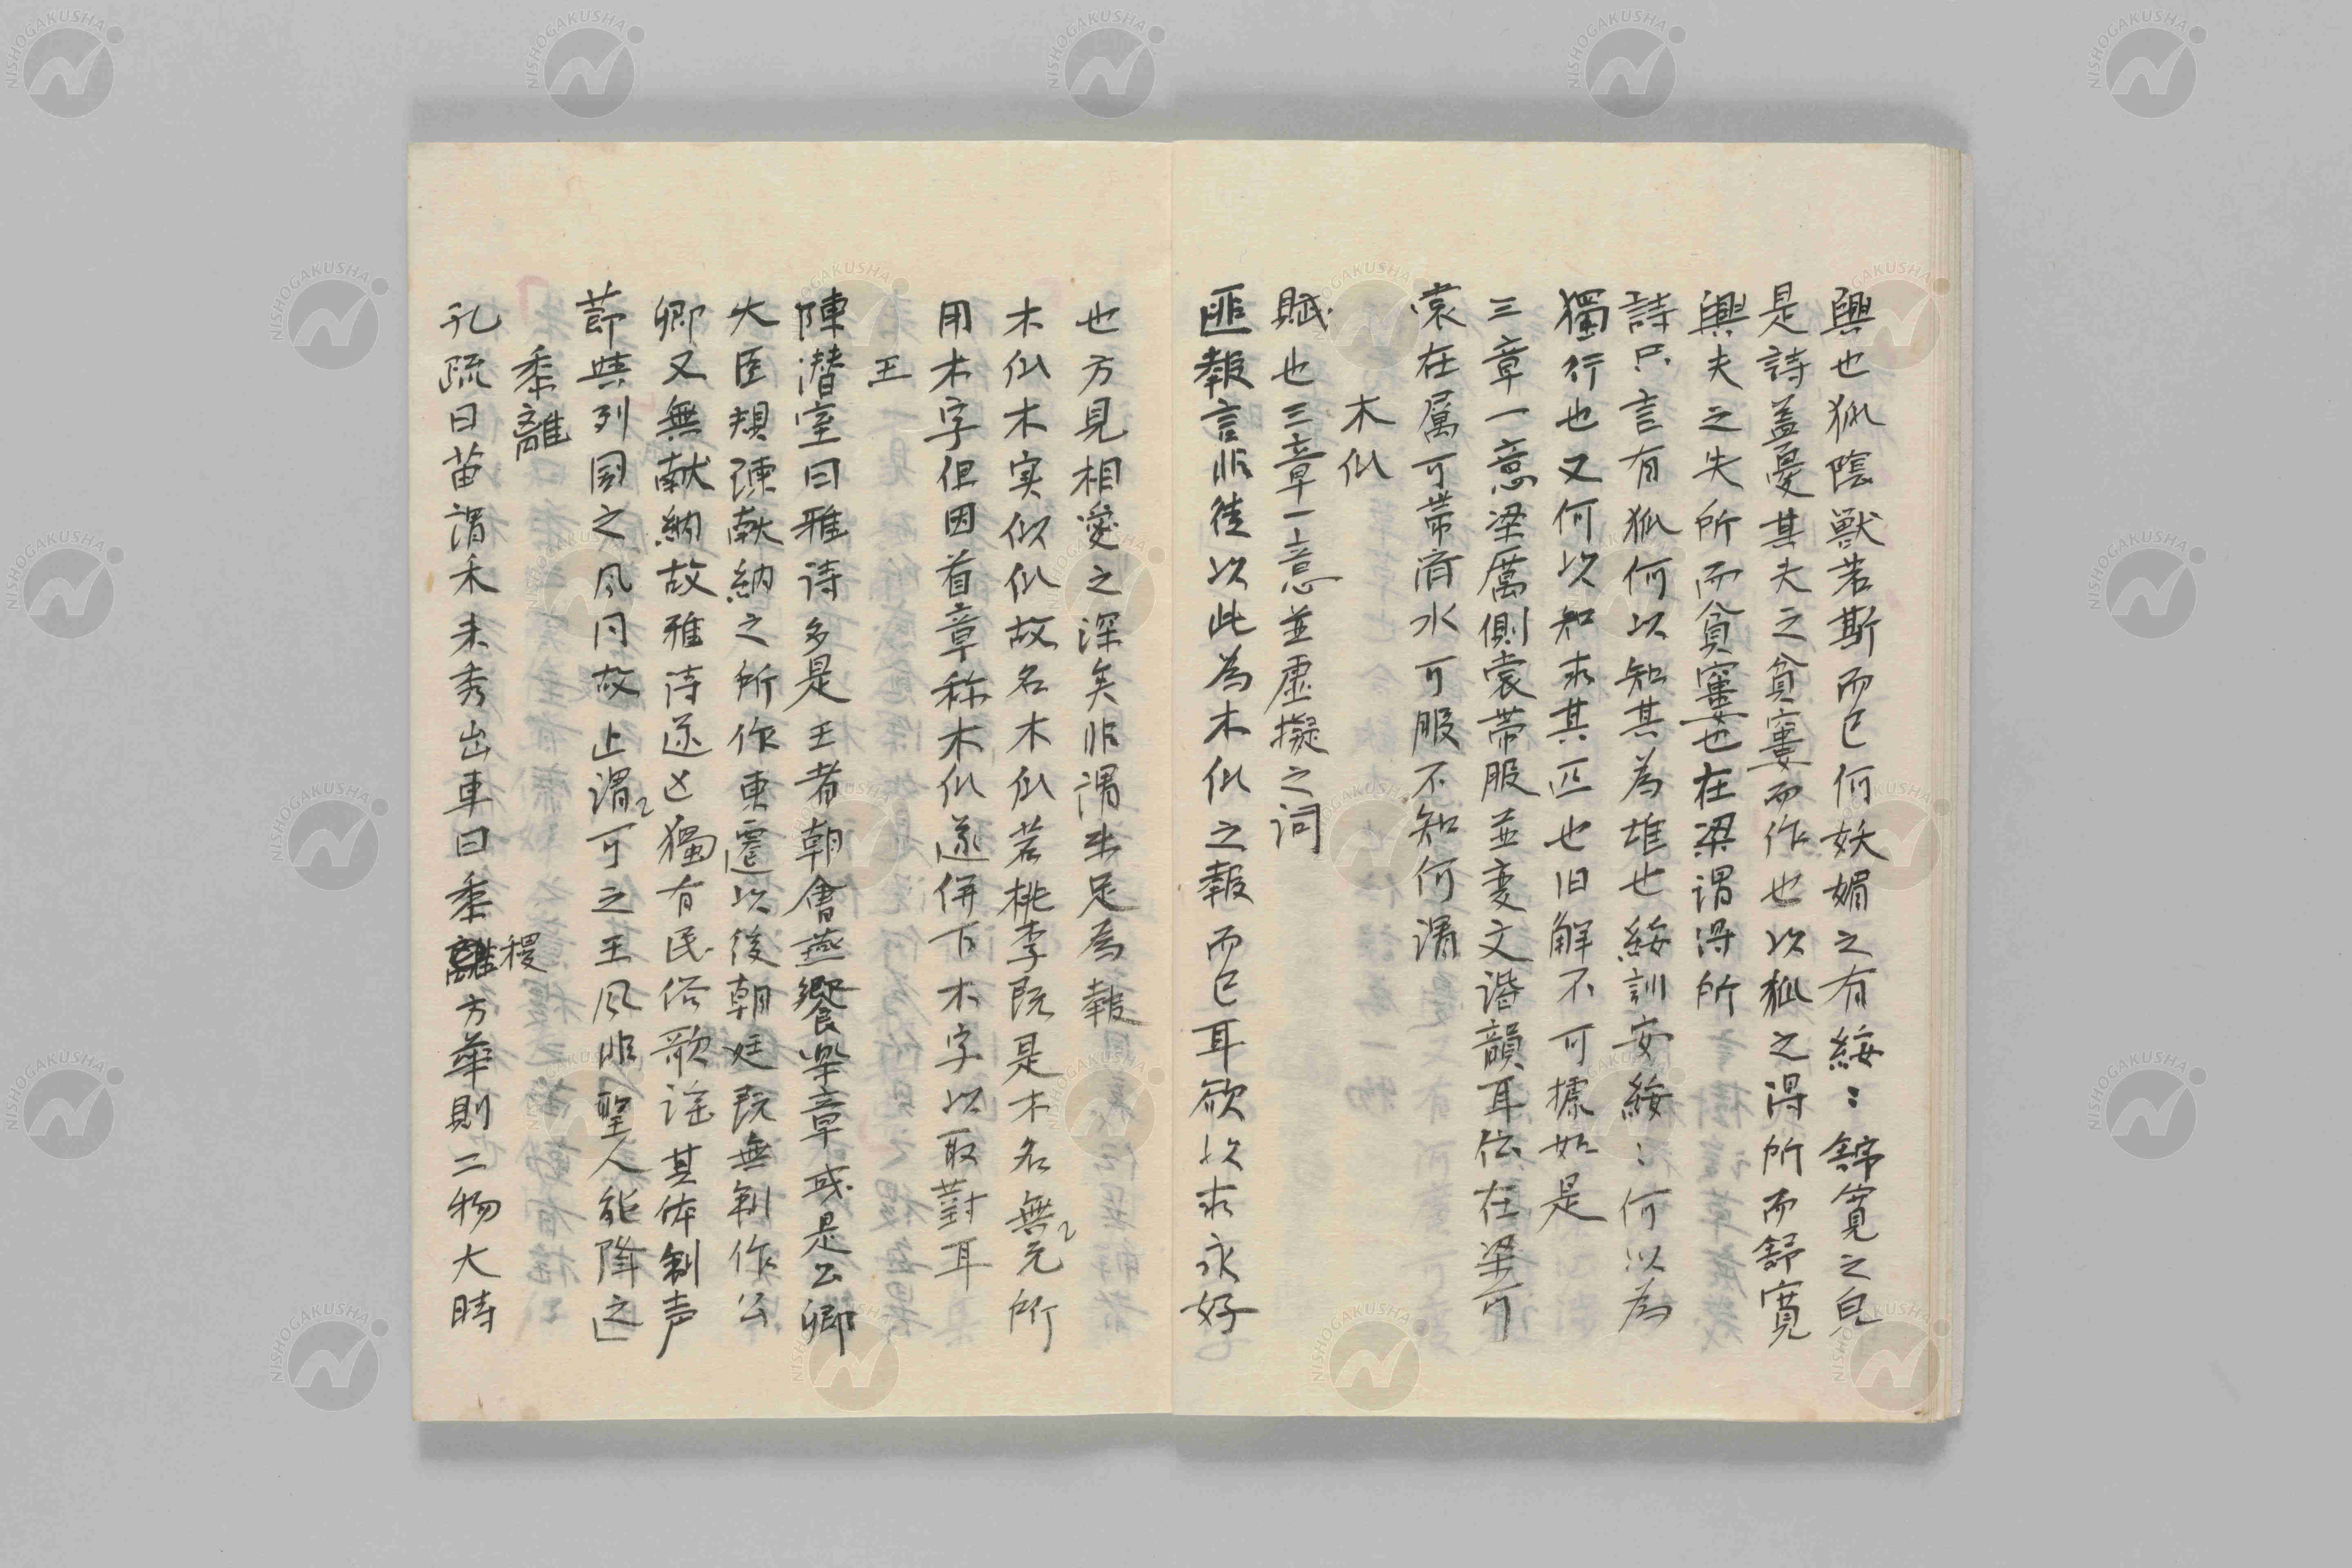 興也狐陰獣若斯而已何妖媚之有綏〻舒寛之皃
是詩蓋憂其夫之貧窶而作也以狐之得所而舒寛
興夫之失所而貧窶也在梁謂得所
詩只言有狐何以知其為雄也綏訓安綏〻何以為
獨行也又何以知求其匹也旧解不可據如是
三章一意梁厲側裳帯服並変文諧韻耳伝在梁可
裳在厲可帯済水可服不知何謂
木似
賦也三章一意並虚擬之詞
匪報言非徒以此為木似之報而已耳欲以求永好
也方見相愛之深矣非謂未足為報
木似木実似似故名木似若桃李既是木名無乙元所
用木字但因首章称木似遂併下木字以取對耳
王
陳潜室曰雅诗多是王者朝會燕饗楽章或是公卿
大臣規諌献納之所作東遷以後朝廷既無制作公
卿又無献納故雅诗遂亡獨有民俗歌谣其体制声
莭與列国之风同故止谓乙可之王风非聖人能降之」
黍離
孔疏曰苗謂禾未秀出車曰黍稷方華則二物大時